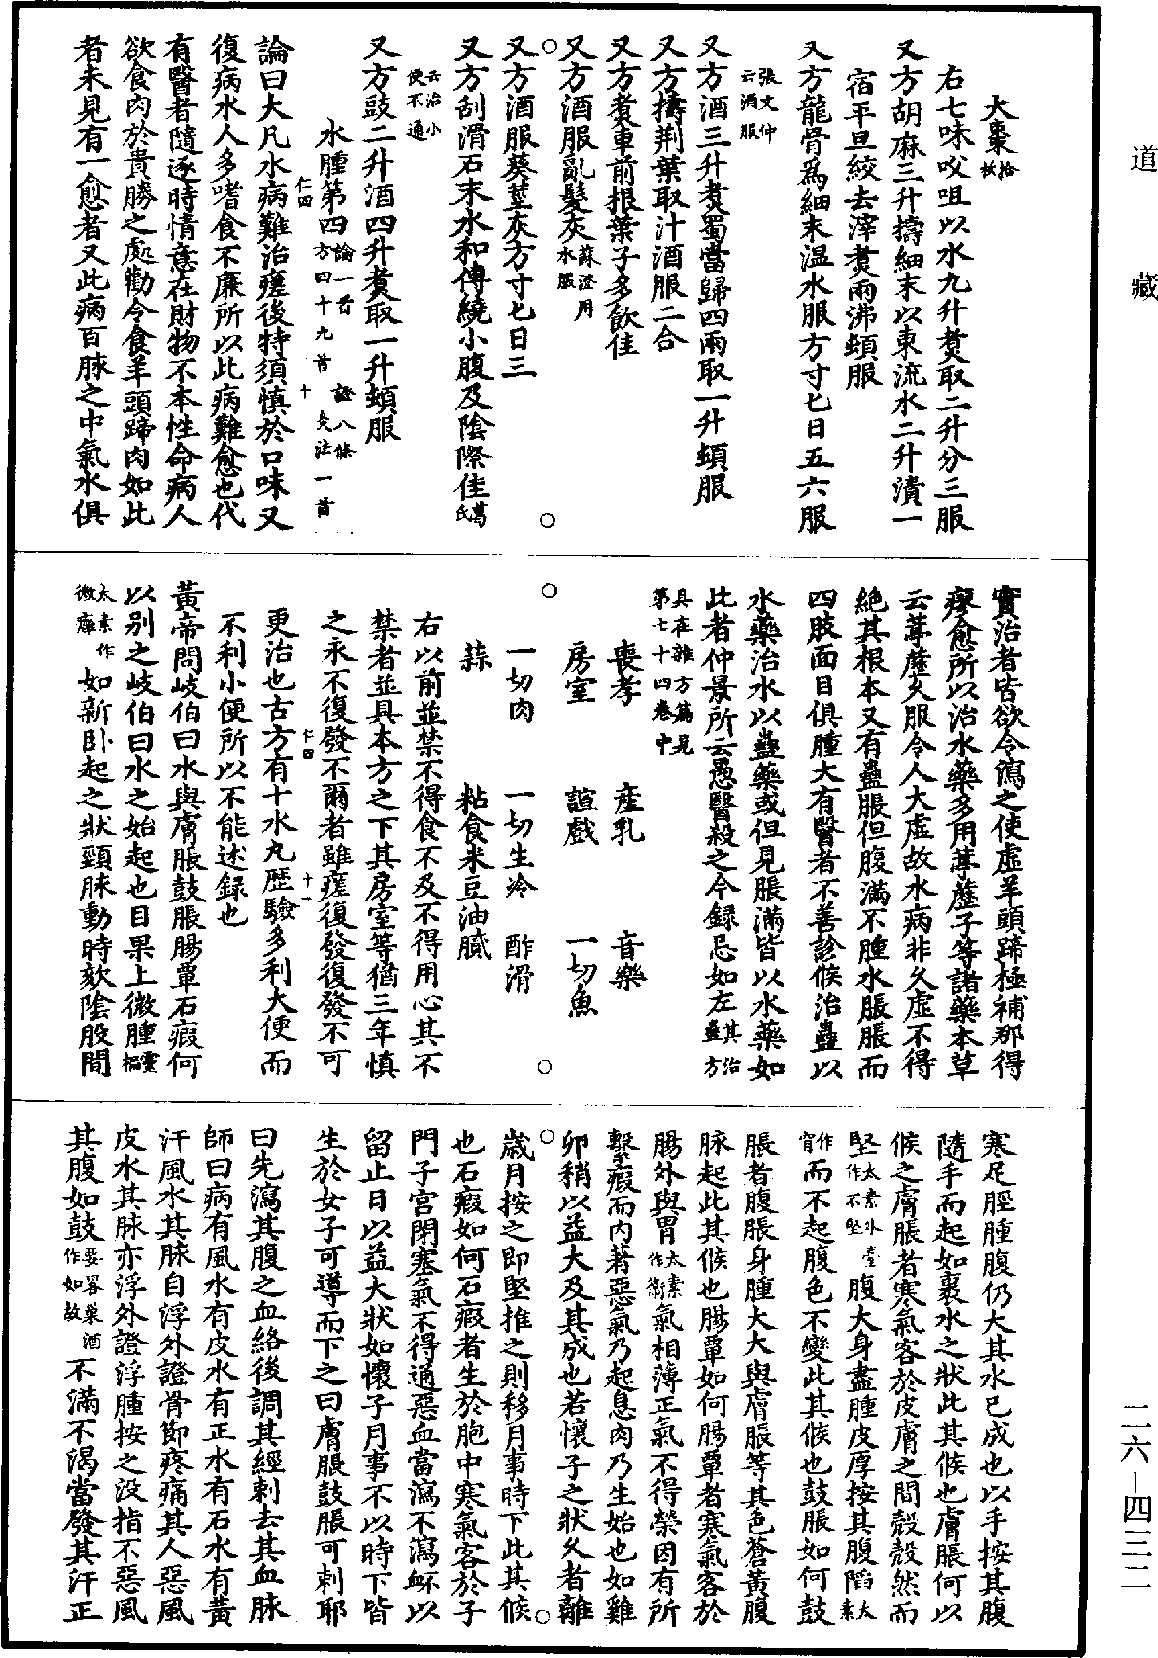 道藏
大棗拾枚
右七味㕮咀以水九升煑取二升分三服
又方胡麻三升擣細末以東流水二升漬一
宿平旦絞去滓煑兩沸頓服
又方龍骨爲細末温水服方寸匕日五六服
張文仲云酒服
又方酒三升煑蜀當歸四兩取一升頓服
又方擣荆葉取汁酒服二合
又方煑車前根葉子多飲佳
又方酒服亂髮灰蘇澄用水服
又方酒服葵莖灰方寸匕日三
又方刮滑石末水和傅繞小腹及陰際佳葛氏
云治小便不通
又方豉二升酒四升煑取一升頓服
水腫第四論一首 證八條 方四十九首 灸法一首
仁四 十
論曰大凡水病難治瘥後特須慎於口味又
復病水人多嗜食不廉所以此病難愈也代
有醫者隨逐時情意在財物不本性命病人
欲食肉於貴勝之處勸令食羊頭蹄肉如此
者未見有一愈者又此病百脉之中氣水俱
實治者皆欲令瀉之使虛羊頭蹄極補那得
療愈所以治水藥多用葶藶子等諸藥本草
云葶藶久服令人大虛故水病非久虛不得
絶其根本又有蠱脹但腹滿不腫水脹脹而
四肢面目俱腫大有醫者不善診候治蠱以
水藥治水以蠱藥或但見脹滿皆以水藥如
此者仲景所云愚醫殺之今録忌如左其治蠱方
具在雜方篇見第七十四卷中
喪孝 産乳 音樂
房室 諠戲 一切魚
一切肉 一切生冷 酢滑
蒜 粘食米豆油膩
右以前並禁不得食不及不得用心其不
禁者並具本方之下其房室等猶三年慎
之永不復發不爾者雖瘥復發復發不可
更治也古方有十水丸歷驗多利大便而
仁四 十一
不利小便所以不能述録也
黃帝問岐伯曰水與膚脹鼓脹腸覃石瘕何
以别之岐伯曰水之始起也目果上微腫靈樞
太素作微癰如新卧起之狀頸脉動時欬陰股間
寒足脛腫腹仍大其水已成也以手按其腹
隨手而起如裹水之狀此其候也膚脹何以
候之膚脹者寒氣客於皮膚之間殼殼然而
堅太素外臺作不堅腹大身盡腫皮厚按其腹陷太素
作窅而不起腹色不變此其候也鼓脹如何鼓
脹者腹脹身腫大大與膚脹等其色蒼黃腹
脉起此其候也腸覃如何腸覃者寒氣客於
腸外與胃太素作衛氣相薄正氣不得榮因有所
繫瘕而内著惡氣乃起息肉乃生始也如雞
卵稍以益大及其成也若懷子之狀久者離
歲月按之即堅推之則移月事時下此其候
也石瘕如何石瘕者生於胞中寒氣客於子
門子宫閉塞氣不得通惡血當瀉不瀉衃以
留止日以益大狀如懷子月事不以時下皆
生於女子可導而下之曰膚脹鼓脹可刺耶
曰先瀉其腹之血絡後調其經刺去其血脉
師曰病有風水有皮水有正水有石水有黃
汗風水其脉自浮外證骨節疼痛其人惡風
皮水其脉亦浮外證浮腫按之没指不惡風
其腹如鼓要畧巢源作如故不滿不渴當發其汗正
二六—四三二